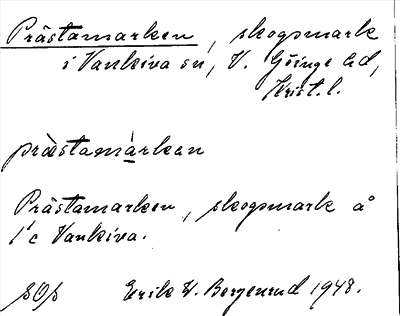 Prästamarken, skogsmark
i Vankiva sn, V. Göinge hd,
Krist. l.
præstamarkan
Prästamarken, skogsmark å
1/c Vankiva.
SOS Erik W. Bergenrud 1948.